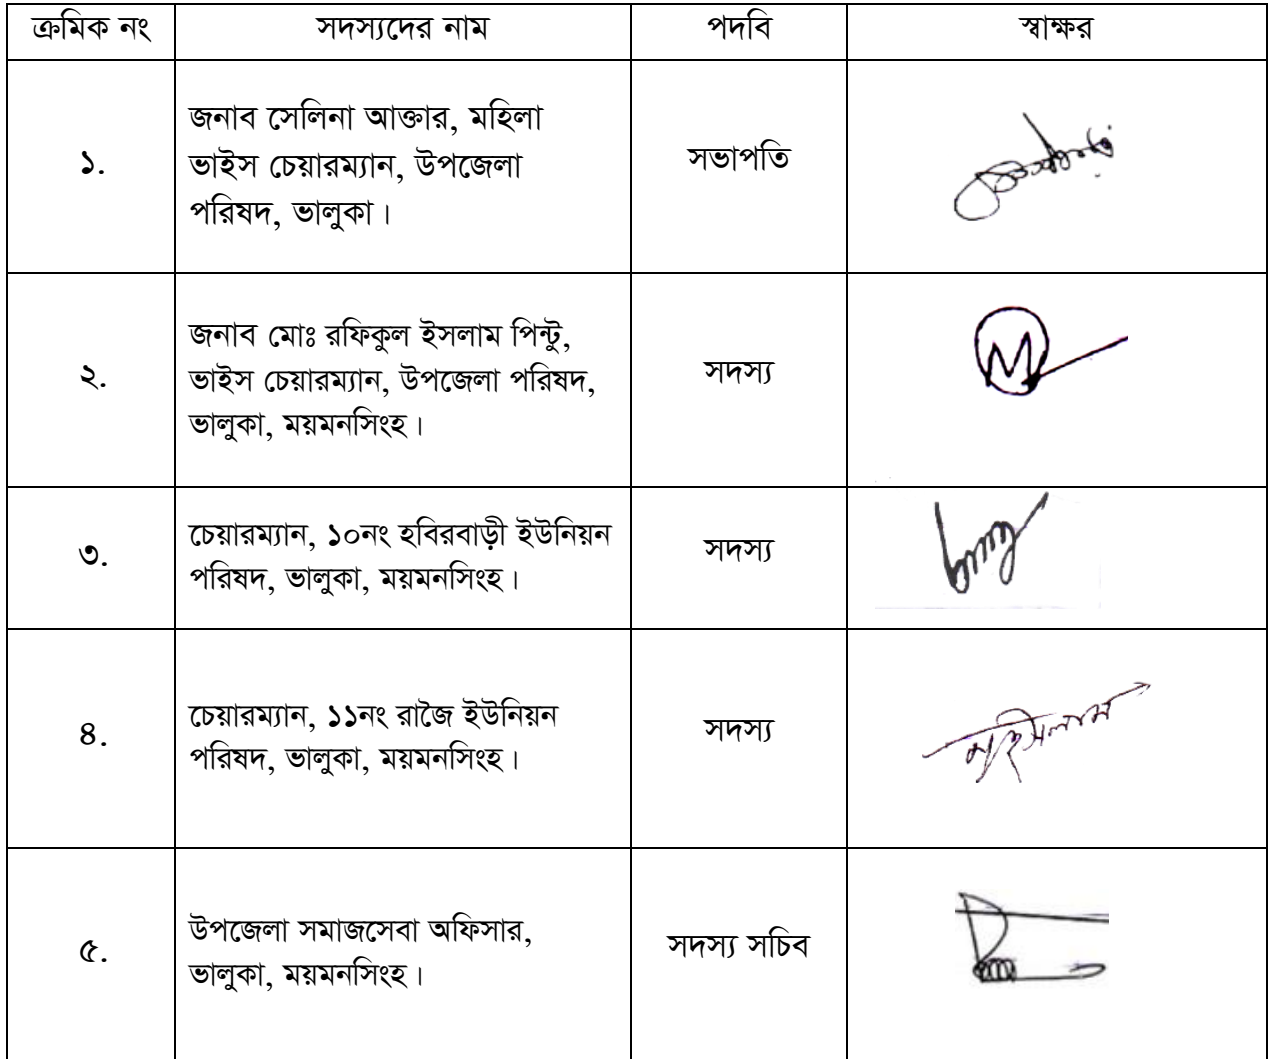 ক্রমিক নং সদস্যদের নাম পদবি স্বাক্ষর
১. জনাব সেলিনা আক্তার, মহিলা
ভাইস চেয়ারম্যান, উপজেলা
পরিষদ, ভালুকা।
সভাপতি
২. জনাব মোঃ রফিকুল ইসলাম পিন্টু,
ভাইস চেয়ারম্যান, উপজেলা পরিষদ,
ভালুকা, ময়মনসিংহ।
সদস্য
M
৩. চেয়ারম্যান, ১০নং হবিরবাড়ী ইউনিয়ন
পরিষদ, ভালুকা, ময়মনসিংহ।
সদস্য
৪. চেয়ারম্যান, ১১নং রাজৈ ইউনিয়ন
পরিষদ, ভালুকা, ময়মনসিংহ।
সদস্য
৫. উপজেলা সমাজসেবা অফিসার,
ভালুকা, ময়মনসিংহ।
সদস্য সচিব